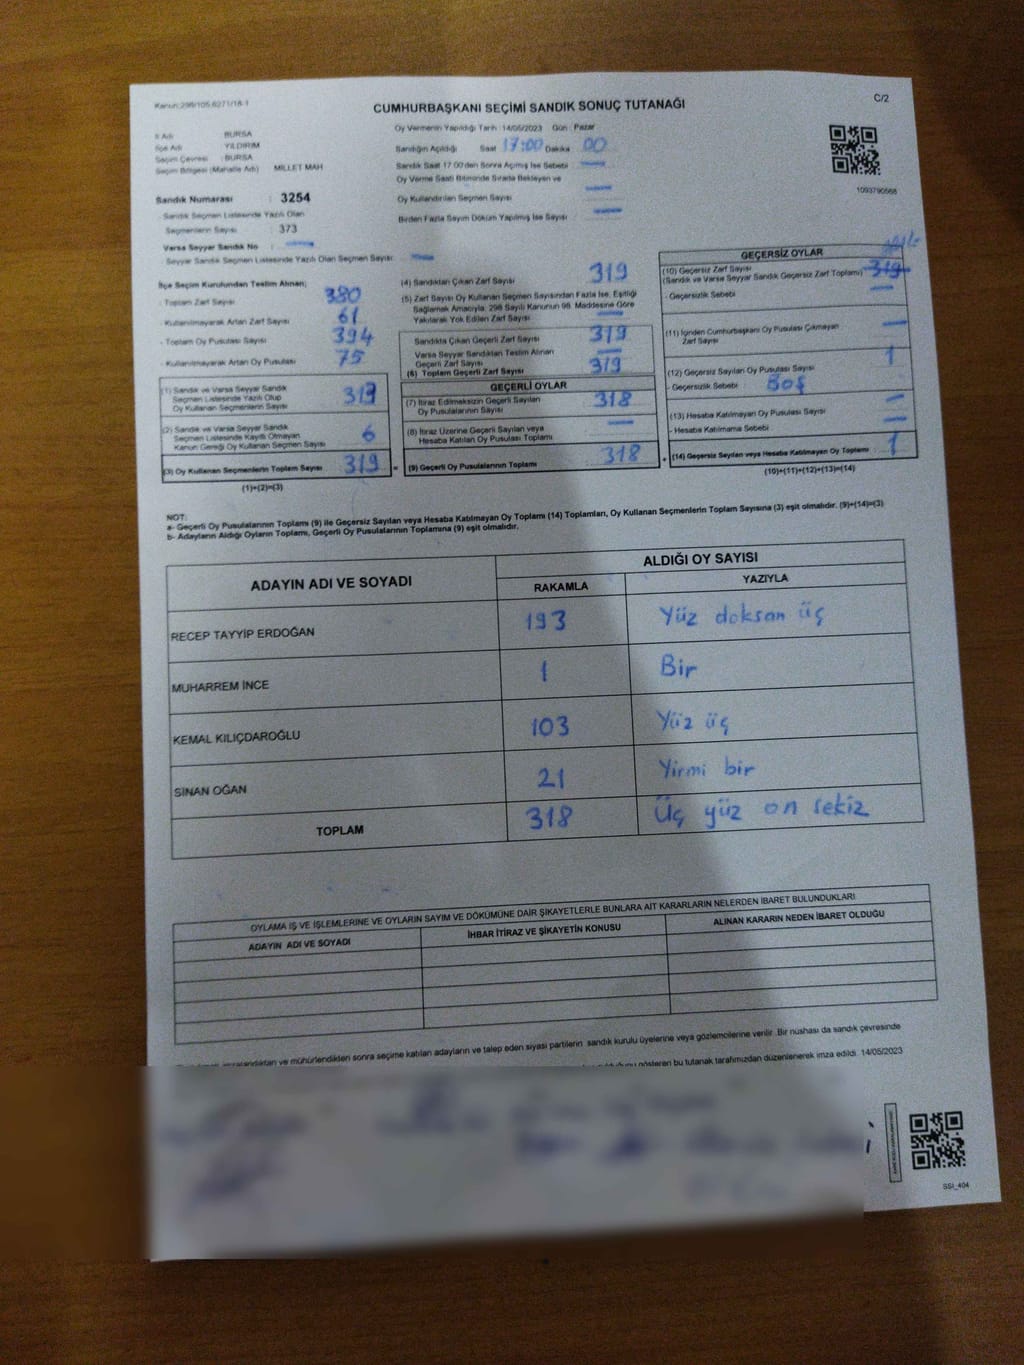 Kanun:298/105,6271/18-1
CUMHURBAŞKANI SEÇİMİ SANDIK SONUÇ TUTANAĞI
C/2
İl Adı : BURSA
İlçe Adı : YILDIRIM
Seçim Çevresi : BURSA
Seçim Bölgesi (Mahalle Adı) : MILLET MAH
Sandık Numarası : 3254
Sandık Seçmen Listesinde Yazılı Olan
Seçmenlerin Sayısı : 373
Varsa Seyyar Sandık No : —
Seyyar Sandık Seçmen Listesinde Yazılı Olan Seçmen Sayısı: —
Oy Vermenin Yapıldığı Tarih :14/05/2023 Gün : Pazar
Sandığın Açıldığı Saat 17:00 Dakika 00
Sandık Saat 17:00'den Sonra Açılmış İse Sebebi : —
Oy Verme Saati Bitiminde Sırada Bekleyen ve
Oy Kullandırılan Seçmen Sayısı —
Birden Fazla Sayım Döküm Yapılmış İse Sayısı : —
1093790568
İlçe Seçim Kurulundan Teslim Alınan;
- Toplam Zarf Sayısı 380
- Kullanılmayarak Artan Zarf Sayısı 61
- Toplam Oy Pusulası Sayısı 394
- Kullanılmayarak Artan Oy Pusulası 75
(1) Sandık ve Varsa Seyyar Sandık
Seçmen Listesinde Yazılı Olup
Oy Kullanan Seçmenlerin Sayısı
(2) Sandık ve Varsa Seyyar Sandık
Seçmen Listesinde Kayıtlı Olmayan
Kanun Gereği Oy Kullanan Seçmen Sayısı 6
(3) Oy Kullanan Seçmenlerin Toplam Sayısı 319 =
(1)+(2)=(3)
(4) Sandıktan Çıkan Zarf Sayısı 319
(5) Zarf Sayısı Oy Kullanan Seçmen Sayısından Fazla İse, Eşitliği
Sağlamak Amacıyla, 298 Sayılı Kanunun 98. Maddesine Göre
Yakılarak Yok Edilen Zarf Sayısı —
Sandıkta Çıkan Geçerli Zarf Sayısı 319
Varsa Seyyar Sandıktan Teslim Alınan
Geçerli Zarf Sayısı —
(6) Toplam Geçerli Zarf Sayısı 319
GEÇERLİ OYLAR
(7) İtiraz Edilmeksizin Geçerli Sayılan
Oy Pusulalarının Sayısı 318
(8) İtiraz Üzerine Geçerli Sayılan veya
Hesaba Katılan Oy Pusulası Toplamı —
(9) Geçerli Oy Pusulalarının Toplamı 318 +
GEÇERSİZ OYLAR
(10) Geçersiz Zarf Sayısı
(Sandık ve Varsa Seyyar Sandık Geçersiz Zarf Toplamı) 319
- Geçersizlik Sebebi —
(11) İçinden Cumhurbaşkanı Oy Pusulası Çıkmayan
Zarf Sayısı —
(12) Geçersiz Sayılan Oy Pusulası Sayısı 1
- Geçersizlik Sebebi : Boş
(13) Hesaba Katılmayan Oy Pusulası Sayısı —
- Hesaba Katılmama Sebebi —
(14) Geçersiz Sayılan veya Hesaba Katılmayan Oy Toplamı : 1
(10)+(11)+(12)+(13)=(14)
NOT:
a- Geçerli Oy Pusulalarının Toplamı (9) ile Geçersiz Sayılan veya Hesaba Katılmayan Oy Toplamı (14) Toplamları, Oy Kullanan Seçmenlerin Toplam Sayısına (3) eşit olmalıdır. (9)+(14)=(3)
b- Adayların Aldığı Oyların Toplamı, Geçerli Oy Pusulalarının Toplamına (9) eşit olmalıdır.
ADAYIN ADI VE SOYADI ALDIĞI OY SAYISI
RAKAMLA YAZIYLA
RECEP TAYYİP ERDOĞAN 193 Yüz doksan üç
MUHARREM İNCE 1 Bir
KEMAL KILIÇDAROĞLU 103 Yüz üç
SİNAN OĞAN 21 Yirmi bir
TOPLAM 318 Üç yüz on sekiz
OYLAMA İŞ VE İŞLEMLERİNE VE OYLARIN SAYIM VE DÖKÜMÜNE DAİR ŞİKAYETLERLE BUNLARA AİT KARARLARIN NELERDEN İBARET BULUNDUKLARI
ADAYIN ADI VE SOYADI İHBAR İTİRAZ VE ŞİKAYETİN KONUSU ALINAN KARARIN NEDEN İBARET OLDUĞU
imzalandıktan ve mühürlendikten sonra seçime katılan adayların ve talep eden siyasi partilerin sandık kurulu üyelerine veya gözlemcilerine verilir. Bir nüshası da sandık çevresinde
gösteren bu tutanak tarafımızdan düzenlenerek imza edildi. 14/05/2023
SSI_404